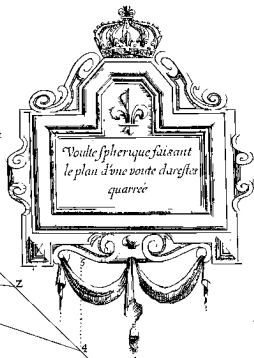 Voulte spherique faisant
le plan d'vne voute darestes
quarreé
z
4